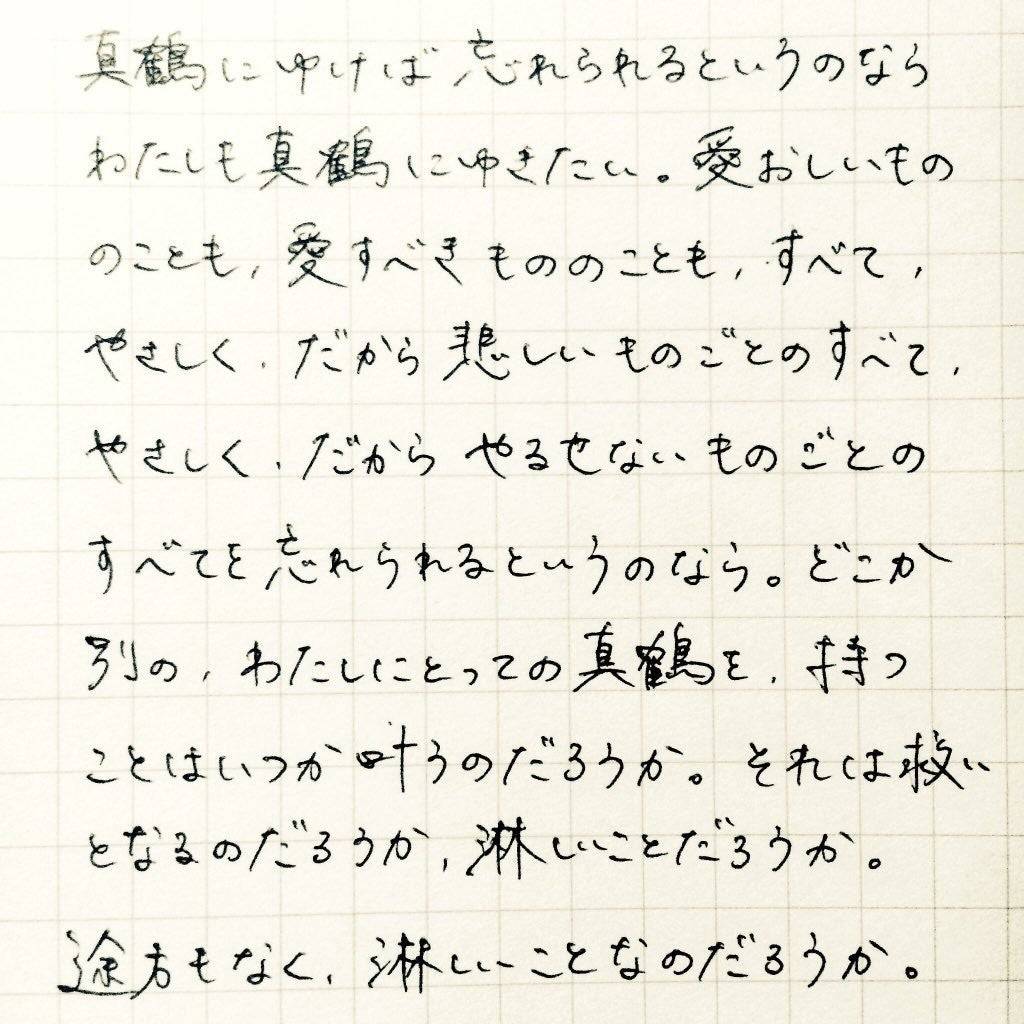 真鶴にゆけば忘れられるというのなら
わたしも真鶴にゆきたい。愛おしいもの
のことも，愛すべきもののことも，すべて，
やさしく，だから悲しいものごとのすべて，
やさしく，だからやるせないものごとの
すべてを忘れられるというのなら。どこか
別の，わたしにとっての真鶴を，持つ
ことはいつか叶うのだろうか。それは救い
となるのだろうか，淋しいことだろうか。
途方もなく，淋しいことなのだろうか。